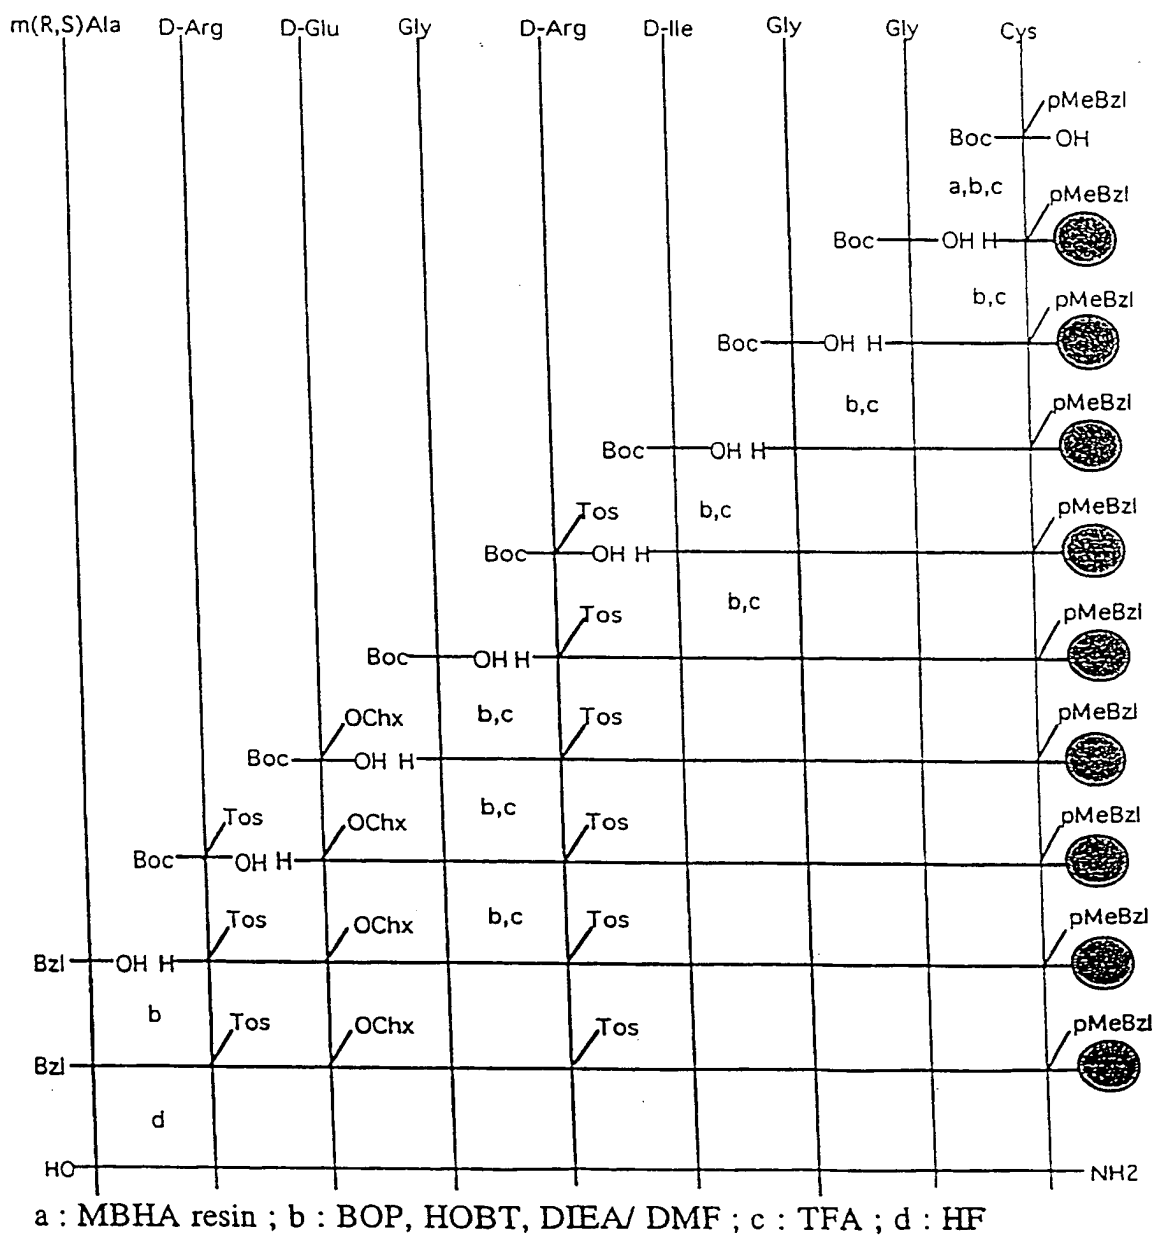 m(R,S)Ala D-Arg D-Glu Gly D-Arg D-Ile Gly Gly Cys
pMeBzl
Boc OH
a,b,c
pMeBzl
Boc OH H
b,c
pMeBzl
Boc OH H
b,c
pMeBzl
Boc OH H
b,c
Tos pMeBzl
Boc OH H
b,c
Tos pMeBzl
Boc OH H
OChx b,c Tos pMeBzl
Boc OH H
b,c
Tos OChx Tos pMeBzl
Boc OH H
b,c
Tos OChx Tos pMeBzl
Bzl OH H
b
Tos OChx Tos pMeBzl
Bzl
d
HO NH2
a : MBHA resin ; b : BOP, HOBT, DIEA/ DMF ; c : TFA ; d : HF